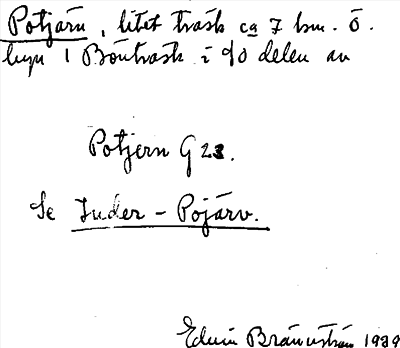 Potjärn, litet träsk ca 7 km. Ö.
byn i Böuträsk i delen av
Potjern G 23.
Se Inder - Pojärv.
Edvin Brännström 1939